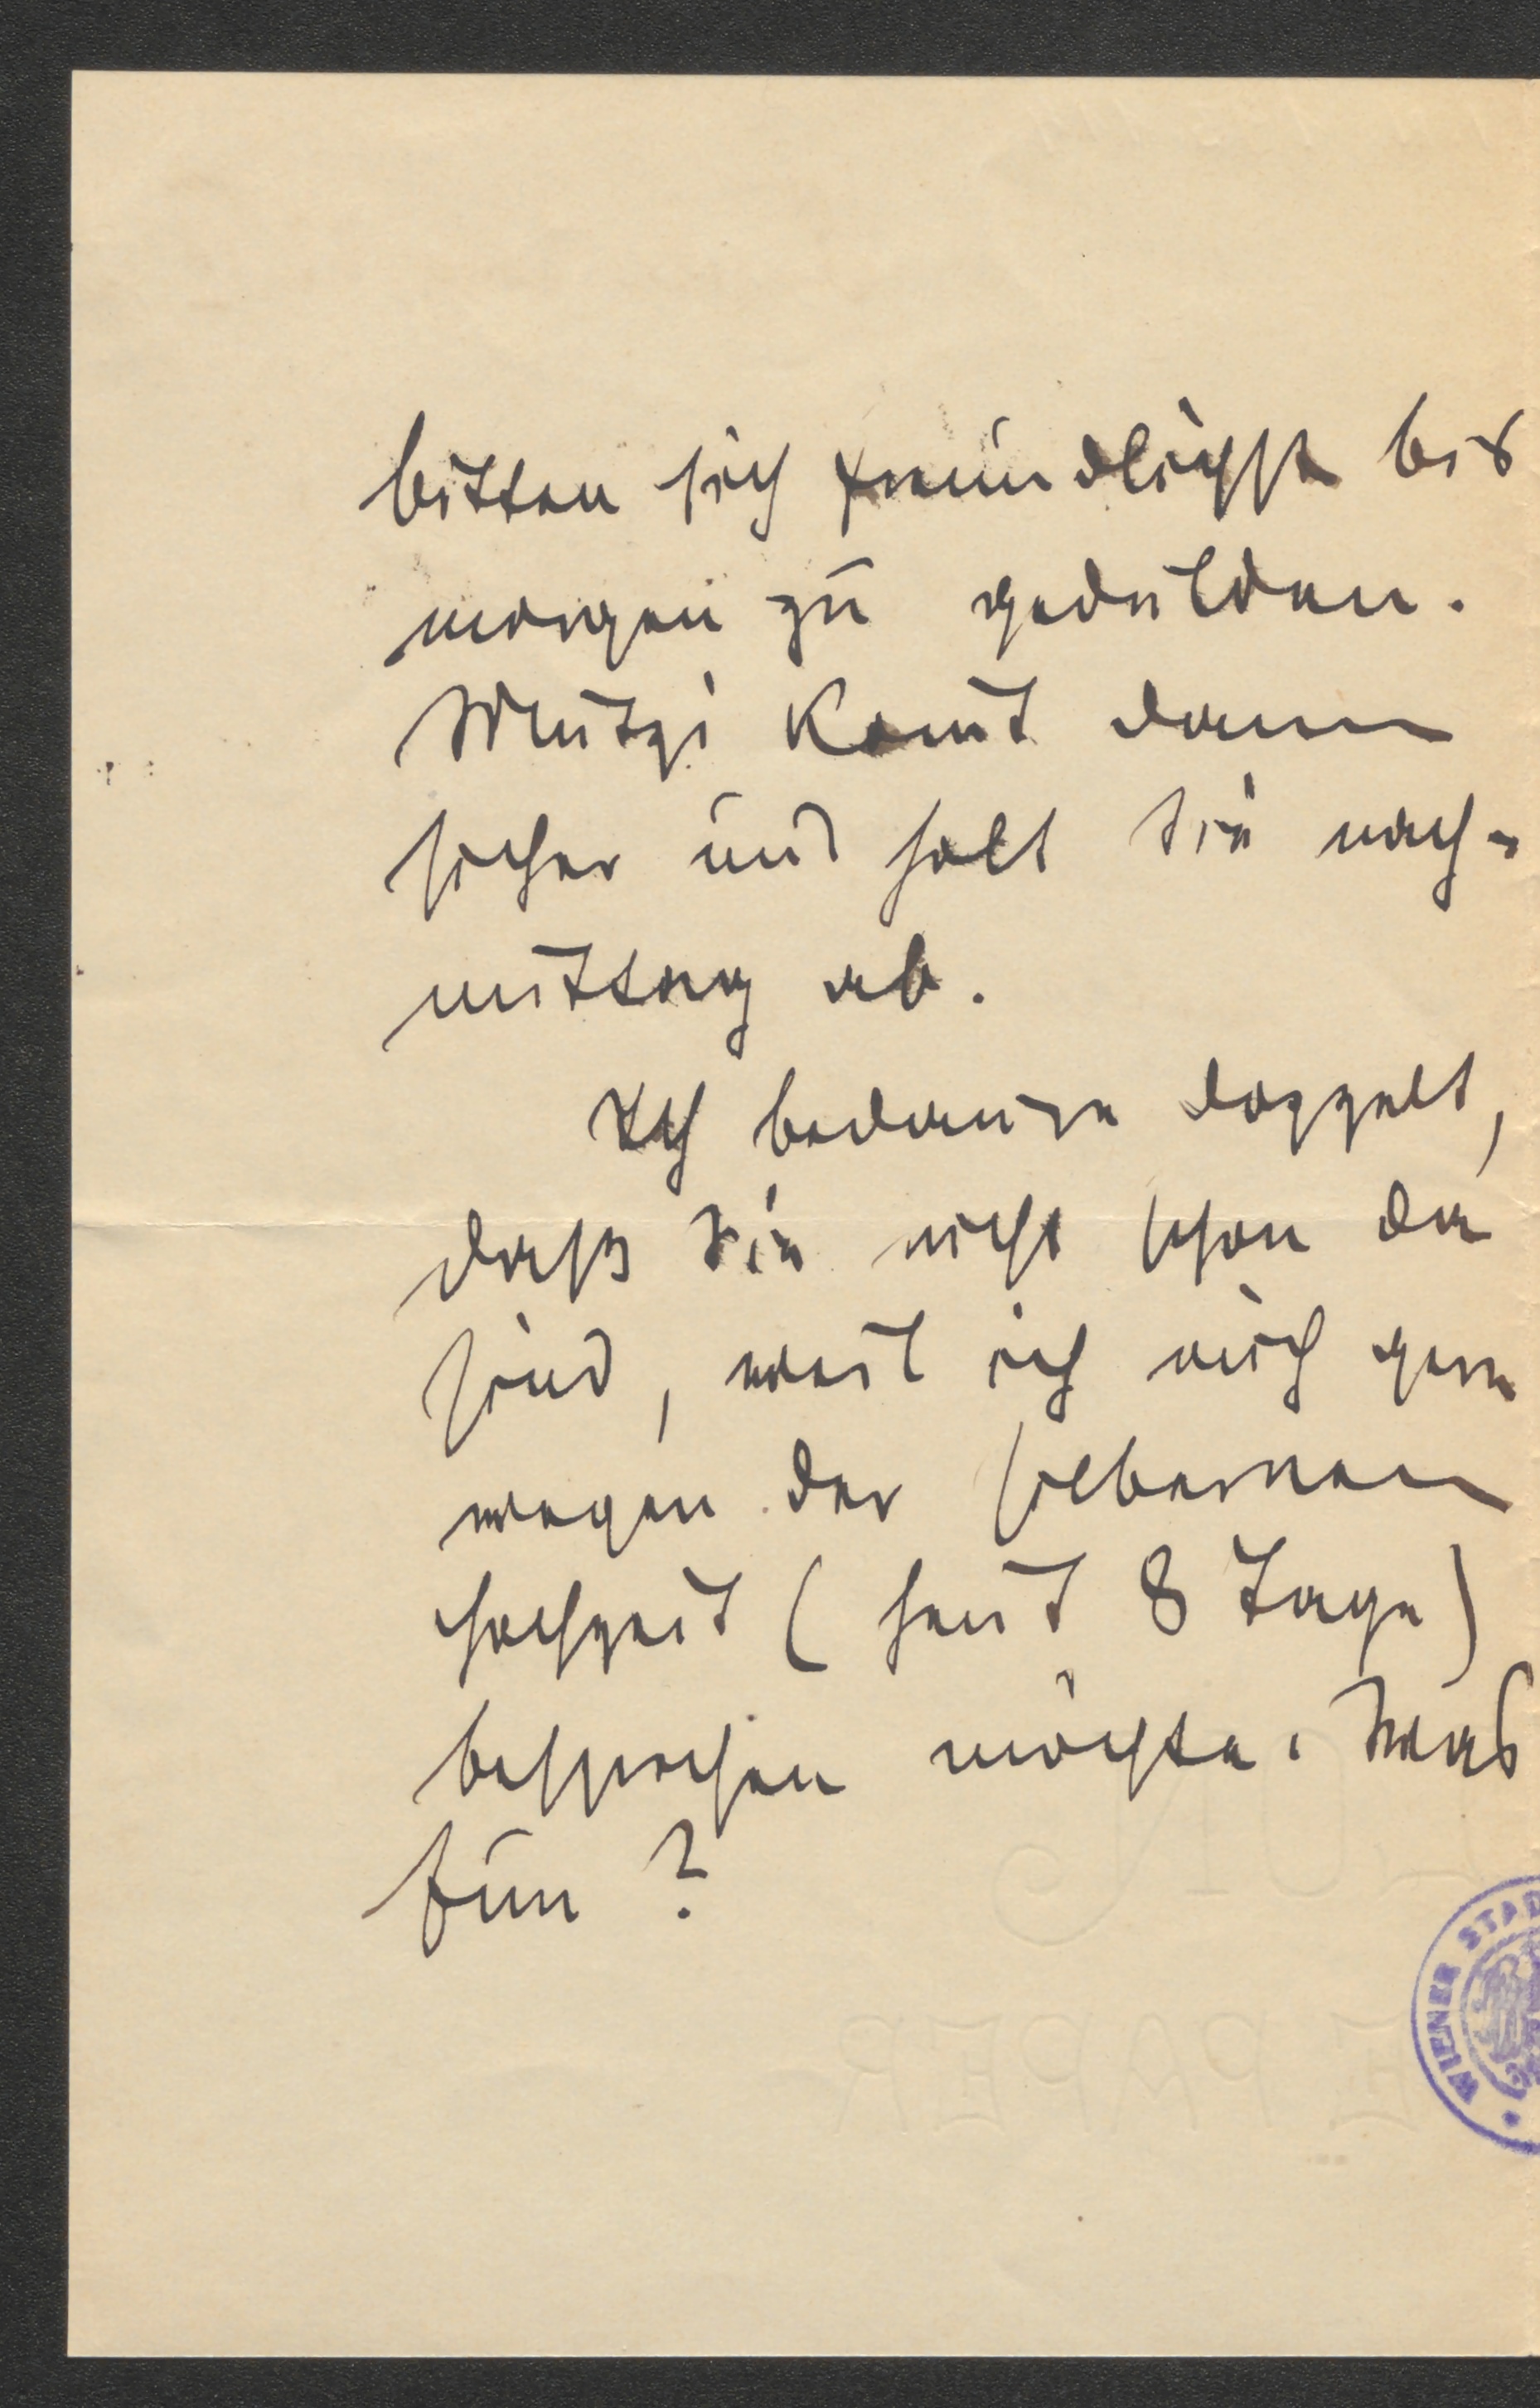 bitten sich freundlichst bis
morgen zu gedulden.
Mutzi kom̅t dann
sicher und holt Sie nach-
mittag ab.
Ich bedaure doppelt,
daß Sie nicht schon da
sind, weil ich mich gern
wegen der silbernen
Hochzeit (heut 8 Tage)
besprechen möchte. Was
tun?
WIENER STAD
E PAPER